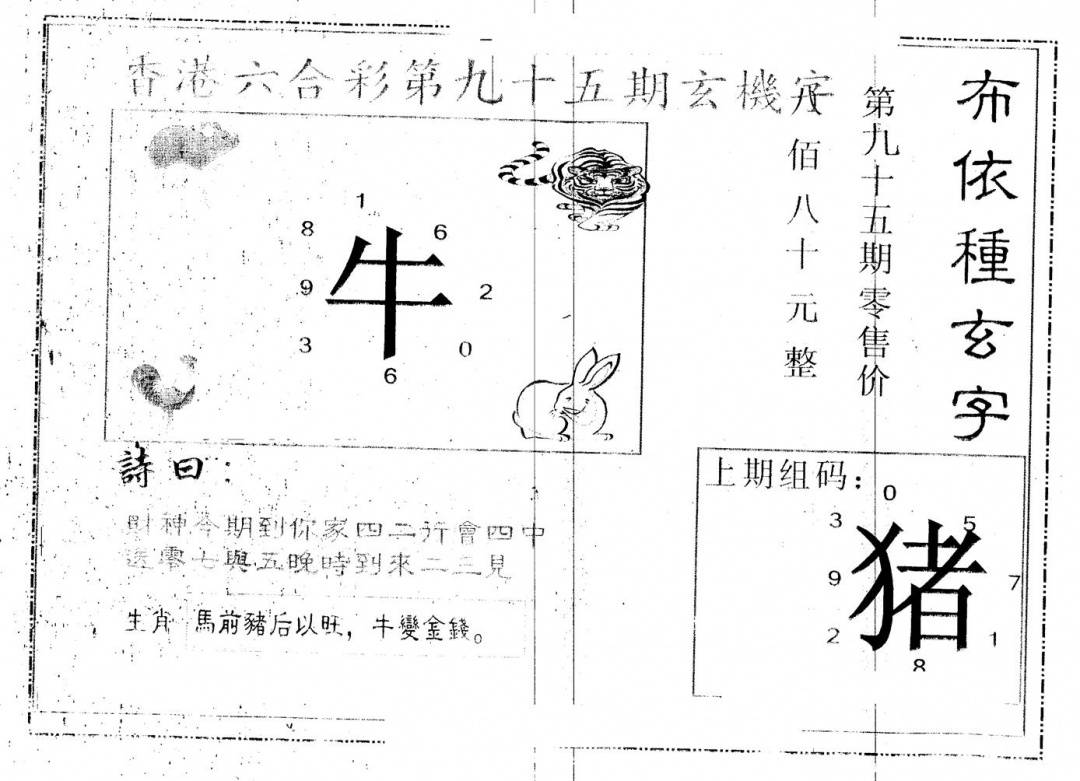 香港六合彩第九十五期玄機字
布依種玄字
第九十五期零售价
八佰八十元整
1
8 6
9 牛 2
3 0
6
詩曰：
財神今期到你家四二行會四中
送零七與五晚時到來二三見
生肖 馬前豬后以旺，牛變金錢。
上期组码：
0
3 5
9 猪 7
2 1
8